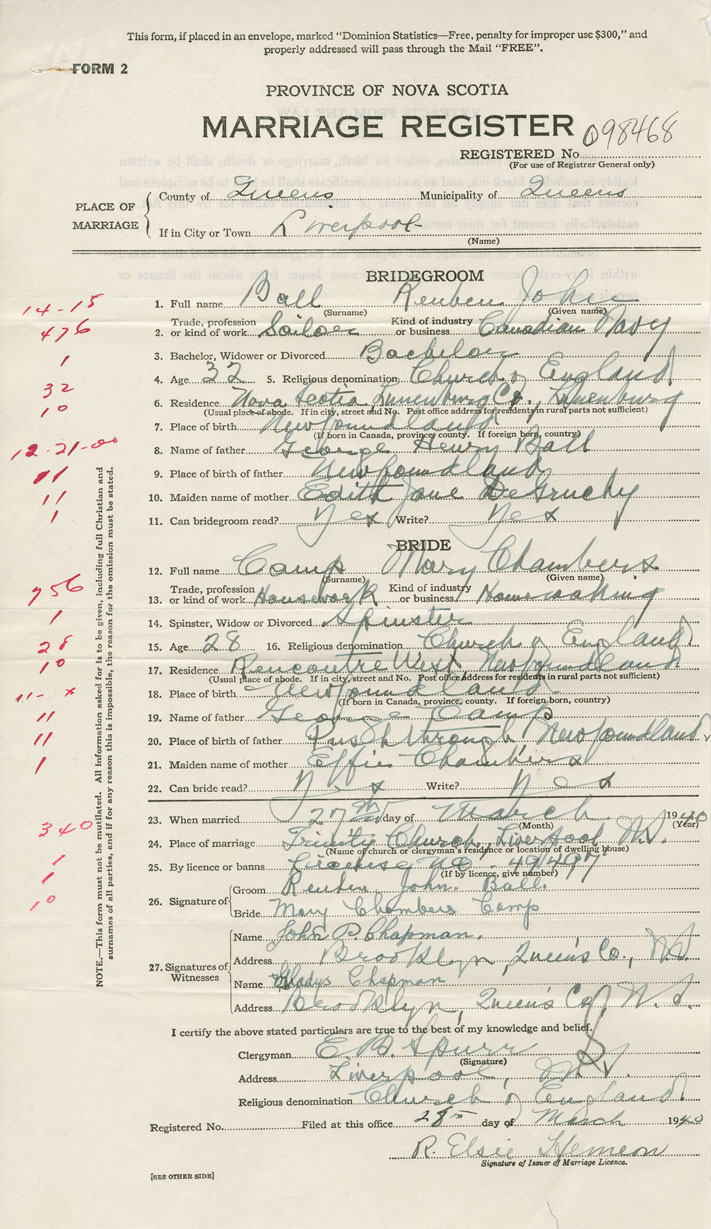 This form, if placed in an envelope, marked "Dominion Statistics—Free, penalty for improper use $300," and
properly addressed will pass through the Mail "FREE".
FORM 2
PROVINCE OF NOVA SCOTIA
MARRIAGE REGISTER 098468
REGISTERED No.
(For use of Registrar General only)
PLACE OF MARRIAGE
County of Queens Municipality of Queens
If in City or Town Liverpool
(Name)
BRIDEGROOM
14-15
1. Full name Ball Reuben John
(Surname) (Given name)
476
2. Trade, profession or kind of work Sailor Kind of industry or business Canadian Navy
1
3. Bachelor, Widower or Divorced Bachelor
32
4. Age 32 5. Religious denomination Church of England
10
6. Residence Nova Scotia Lunenburg Co., Lunenburg
(Usual place of abode. If in city, street and No. Post office address for residents in rural parts not sufficient)
7. Place of birth Newfoundland
(If born in Canada, province, county. If foreign born, country)
12-21-00
8. Name of father George Henry Ball
11
9. Place of birth of father Newfoundland
11
10. Maiden name of mother Edith Jane DeGruchy
1
11. Can bridegroom read? Yes Write? Yes
BRIDE
12. Full name Camp Mary Chambers
(Surname) (Given name)
756
13. Trade, profession or kind of work Housework Kind of industry or business Homemaking
1
14. Spinster, Widow or Divorced Spinster
28
15. Age 28 16. Religious denomination Church of England
10
17. Residence Rencontre West, Newfoundland.
(Usual place of abode. If in city, street and No. Post office address for residents in rural parts not sufficient)
11-x
18. Place of birth Newfoundland
(If born in Canada, province, county. If foreign born, country)
11
19. Name of father George Camp
11
20. Place of birth of father Pushthrough Newfoundland
1
21. Maiden name of mother Effie Chambers
22. Can bride read? Yes Write? Yes
23. When married 27th day of March 1940
(Month) (Year)
340
24. Place of marriage Trinity Church, Liverpool N.S.
(Name of church or clergyman's residence or location of dwelling house)
1
25. By licence or banns License No. 49497
(If by licence, give number)
1
26. Signature of
Groom Reuben John. Ball.
10
Bride Mary Chambers Camp
27. Signatures of Witnesses
Name John P. Chapman.
Address Brooklyn, Queen's Co., N.S.
Name Gladys Chapman
Address Brooklyn, Queen's Co., N.S.
I certify the above stated particulars are true to the best of my knowledge and belief.
Clergyman E. B. Spurr
(Signature)
Address Liverpool, N.S.
Religious denomination Church of England
Registered No. Filed at this office 28th day of March 1940
R. Elsie Hemeon
Signature of Issuer of Marriage Licence.
[SEE OTHER SIDE]
NOTE.—This form must not be mutilated. All information asked for is to be given, including full Christian and
surnames of all parties, and if for any reason this is impossible, the reason for the omission must be stated.